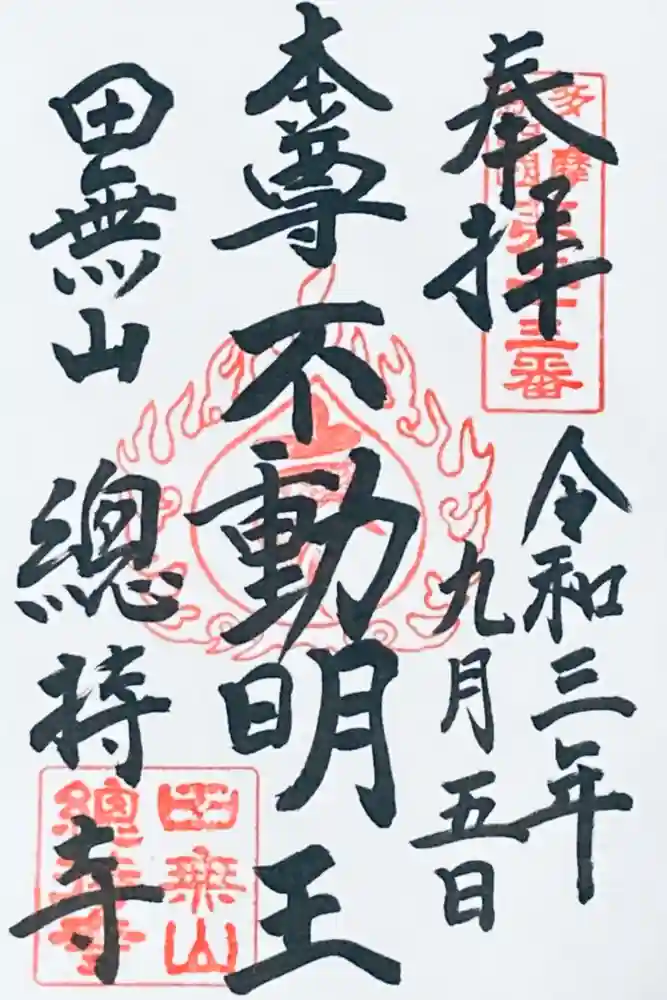 奉拝
令和三年
九月五日
本尊不動明王
田無山
總持寺
多摩
三番
田無山
總持寺